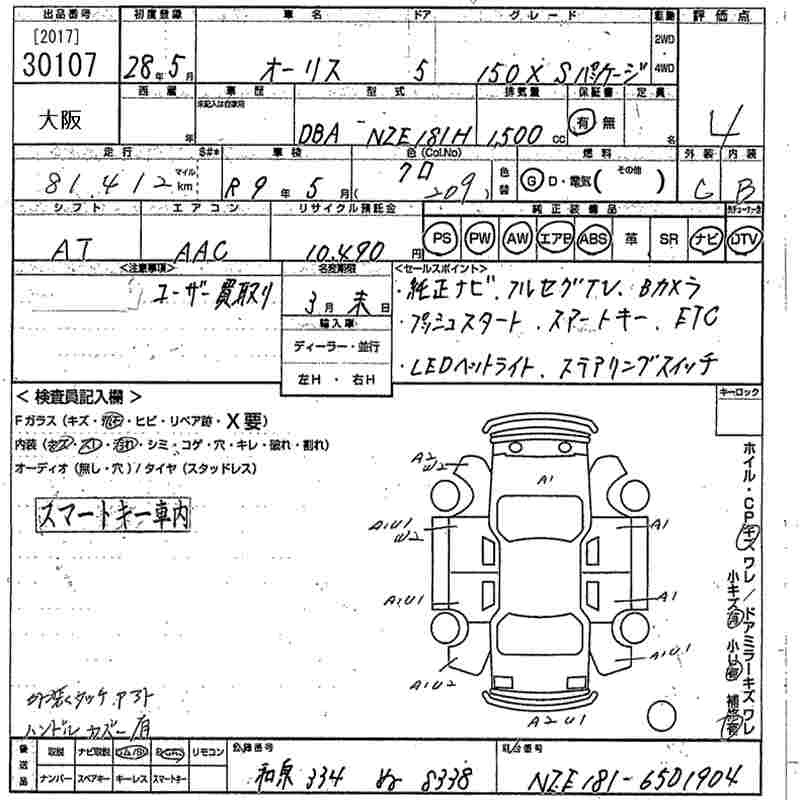 出品番号 初度登録 車名 ドア グレード 駆動 評価点
[2017]
30107
28年5月 オーリス 5 150X Sパッケージ 2WD 4WD
4
大阪
車歴 型式 排気量 保証書 定員
未記入は自家用
年 DBA NZE181H 1,500cc 有 無 名
走行 S#* 車検 色(Col.No) 燃料 外装 内装
81,412 マイル km R9年5月 クロ (209) 色替 G D・電気 (その他) C B
シフト エアコン リサイクル預託金 純正装備品
AT AAC 10,490円 PS PW AW エアB ABS 革 SR ナビ DTV
<注意事項> 名変期限 <セールスポイント>
ユーザー買取り
3月末日
・純正ナビ、フルセグTV、Bカメラ
輸入車
・プッシュスタート、スマートキー、ETC
ディーラー・並行
・LEDヘットライト、ステアリングスイッチ
左H・右H
<検査員記入欄> キーロック
Fガラス(キズ・飛石・ヒビ・リペア跡・X要)
内装(キズ・スレ・汚れ・シミ・コゲ・穴・キレ・破れ・割れ)
オーディオ(無し・穴)/タイヤ(スタッドレス)
スマートキー車内
A2
W2
A1
A1U1
W2
A1
A1U1
A1
A1U1
A1U2
A2U1
ホイル・CPキズワレ/ドアミラーキズワレ
小キズ有 小U有 補修有
ハンドル カバー有
後送品 取説 ナビ取説 リモコン
ナンバー スペアキー キーレス スマートキー
登録番号 車台番号
和泉 334 ぬ 8338 NZE181-6501904